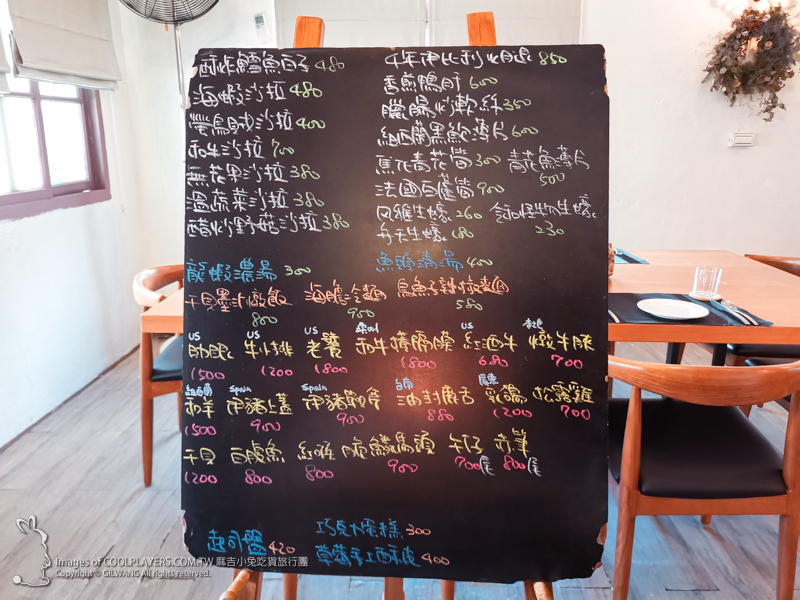 酥炸鱈魚白子 480
海蝦沙拉 480
螢烏賊沙拉 400
和牛沙拉 700
無花果沙拉 380
溫蔬菜沙拉 380
醋炒野菇沙拉 380
4年伊比利火腿 850
香煎鴨肝 600
臘腸炒軟絲 350
紐西蘭黑鮑薄片 600
蕉花青花筍 300 青花魚薄片 500
法國白蘆筍 900
貝雅生蠔 260 令和怪物生蠔 230
弁天生蠔 180
龍蝦濃湯 300
魚頭清湯 400
干貝墨汁燉飯 800
海膽冷麵 900
烏魚子辣椒麵 580
US 肋眼 1500
US 牛小排 1200
US 老饕 1800
和牛橫膈膜 1800
US 紅酒牛 680
燉牛腱 700
紐西蘭 和羊 1500
Spain 伊豬上蓋 900
Spain 伊豬戰斧 900
台南 油封 880
屏東 乳鴿 1200
松露雞 700
干貝 1200
白鱸魚 800
紅喉 800
馬頭 900
午仔 700尾
赤筆 800尾
起司盤 420
巧克力蛋糕 300
草莓手工西米露 400
Images of COOLPLAYERS.COM.TW 麻吉小兔吃貨旅行團
Copyright © GILWANG All rights reserved.